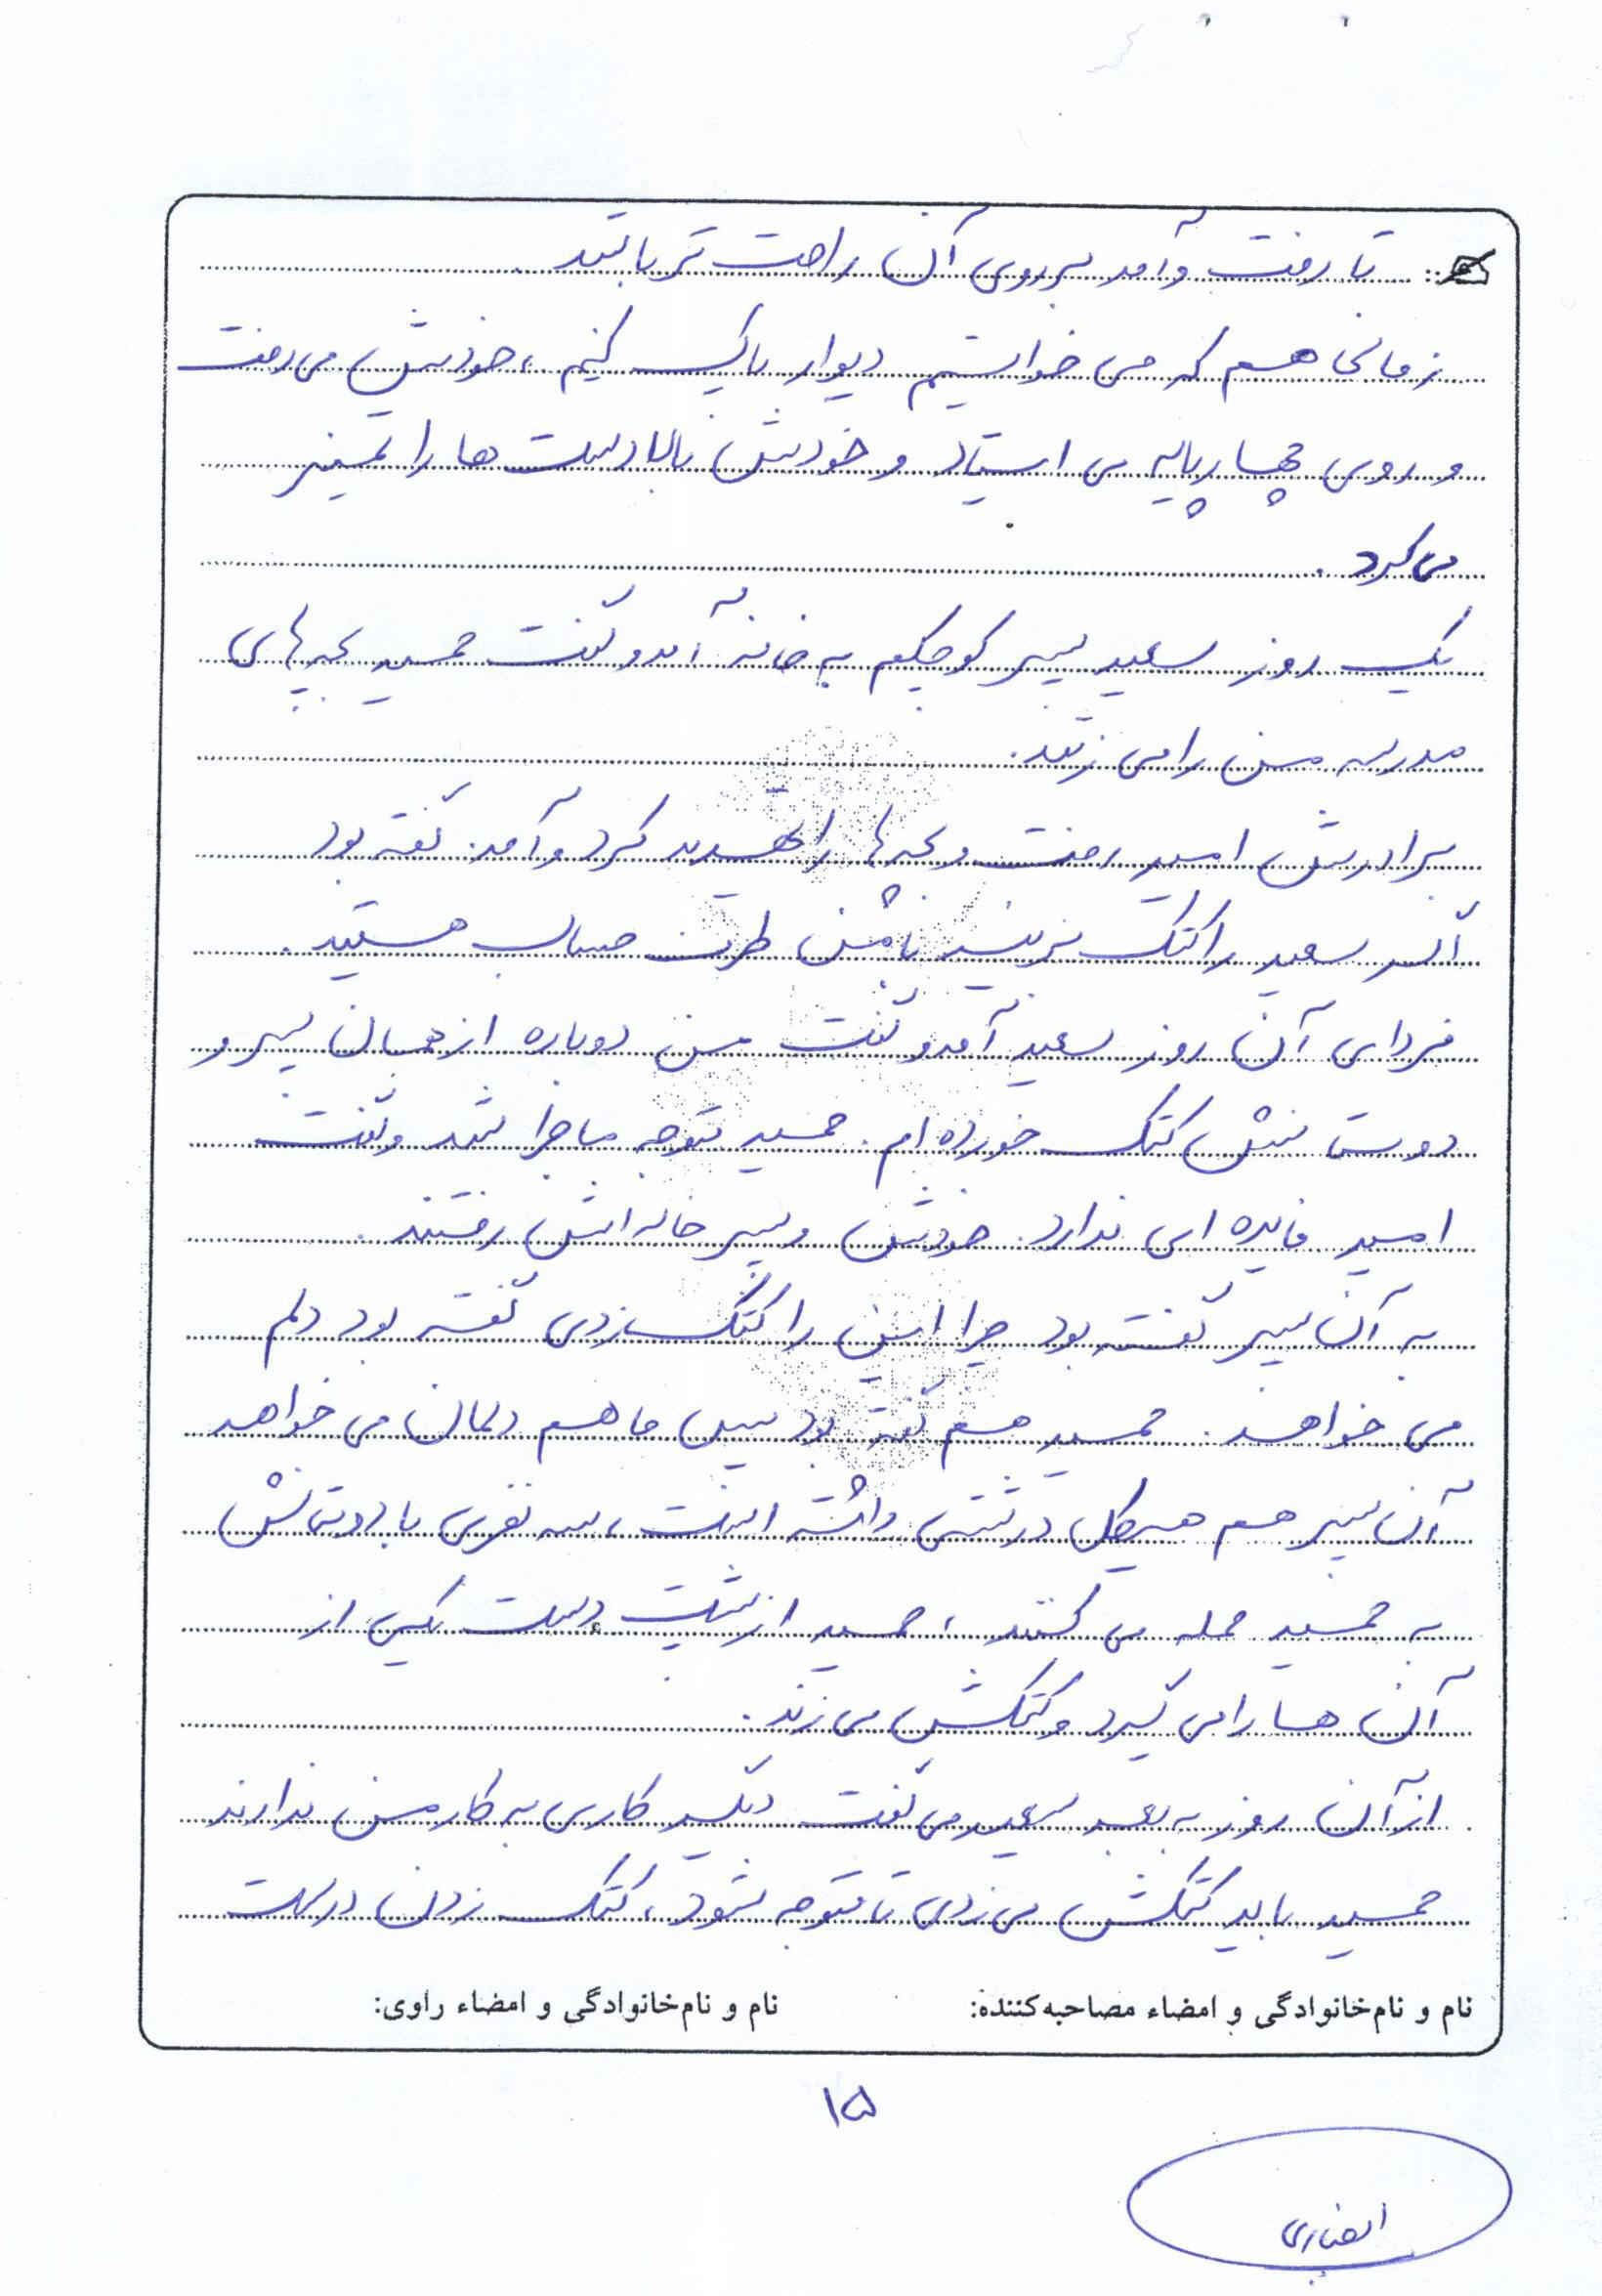 تا رفت و آمد بر روی آن راحت تر باشد.
زمانی هم که می خواستیم دیوار پاک کنیم، خودش می رفت
و روی چهارپایه می ایستاد و خودش بالا دست ها را تمیز
می کرد.
یک روز سعید پسر کوچکم به خانه آمد و گفت حمید بچه های
مدرسه من را می زنند.
برادرش امید رفت و بچه ها را تهدید کرد و آمد. گفته بود
اگر سعید را کتک بزنید با من طرف حساب هستید.
فردای آن روز سعید آمد و گفت من دوباره از همان پسر و
دوستانش کتک خورده ام. حمید متوجه ماجرا شد و گفت
امید فایده ای ندارد. خودش و پسر خاله اش رفتند.
به آن پسر گفته بود چرا این را کتک زدی گفته بود دلم
می خواهد. حمید هم گفته بود پس ما هم دلمان می خواهد
آن پسر هم هیکل درشتی داشته است، سه نفری با دوستانش
به حمید حمله می کنند، حمید از پشت دست یکی از
آن ها را می گیرد و کتکش می زند.
از آن روز به بعد سعید می گفت دیگر کاری به کار من ندارند
حمید باید کتکش می زدی تا متوجه شود، کتک زدن درست
نام و نام‌خانوادگی و امضاء مصاحبه‌کننده: نام و نام‌خانوادگی و امضاء راوی:
۱۵
انصاری